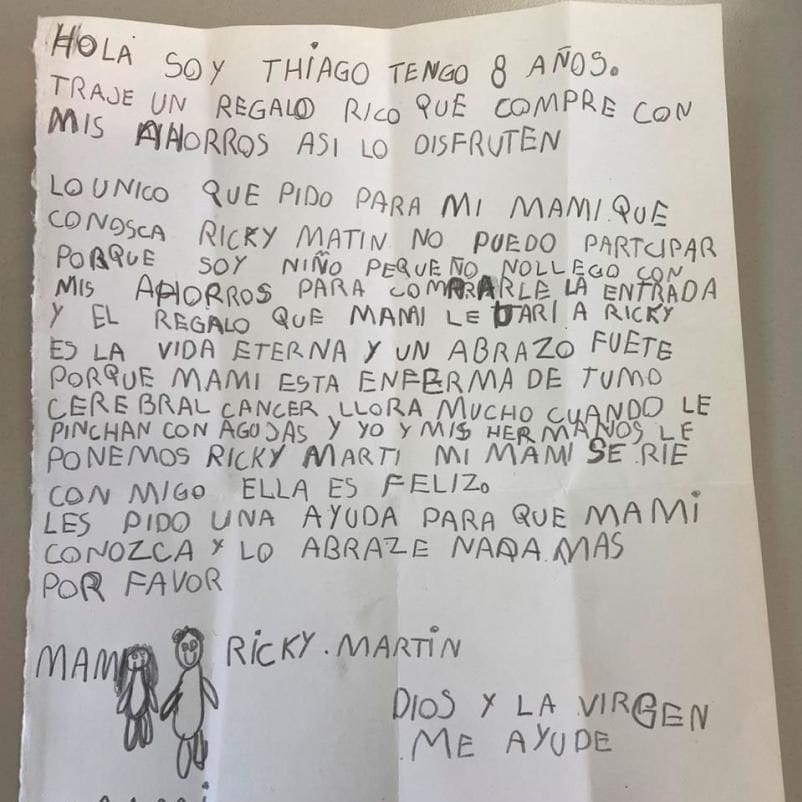 HOLA SOY THIAGO TENGO 8 AÑOS.
TRAJE UN REGALO RICO QUE COMPRE CON
MIS AHORROS ASI LO DISFRUTEN
LO UNICO QUE PIDO PARA MI MAMI.QUE
CONOSCA RICKY MATIN NO PUEDO PARTCIPAR
PORQUE SOY NIÑO PEQUEÑO NOLLEGO CON
MIS AHORROS PARA COMPRARLE LA ENTRADA
Y EL REGALO QUE MAMI LE DARI A RICKY
ES LA VIDA ETERNA Y UN ABRAZO FUETE
PORQUE MAMI ESTA ENFERMA DE TUMO
CEREBRAL CANCER LLORA MUCHO CUANDO LE
PINCHAN CON AGUJAS Y YO Y MIS HERMANOS LE
PONEMOS RICKY MARTI MI MAMI SE RIE
CON MIGO ELLA ES FELIZ.
LES PIDO UNA AYUDA PARA QUE MAMI
CONOZCA Y LO ABRAZE NADA.MAS
POR FAVOR
MAMI RICKY.MARTIN
DIOS Y LA VIRGEN
ME AYUDE